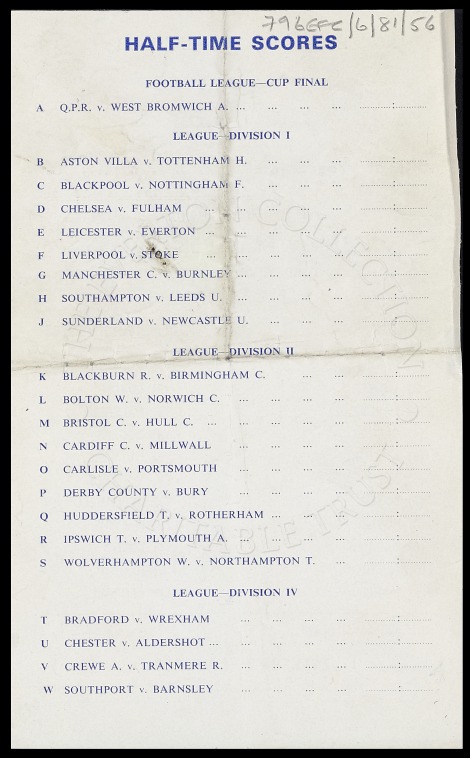 796EFC/6/81/56
HALF-TIME SCORES
FOOTBALL LEAGUE—CUP FINAL
A Q.P.R. v. WEST BROMWICH A. ... ... ... ... ............:............
LEAGUE—DIVISION I
B ASTON VILLA v. TOTTENHAM H. ... ... ... ............:............
C BLACKPOOL v. NOTTINGHAM F. ... ... ... ............:............
D CHELSEA v. FULHAM ... ... ... ... ... ............:............
E LEICESTER v. EVERTON ... ... ... ... ... ............:............
F LIVERPOOL v. STOKE ... ... ... ... ... ............:............
G MANCHESTER C. v. BURNLEY ... ... ... ... ............:............
H SOUTHAMPTON v. LEEDS U. ... ... ... ... ............:............
J SUNDERLAND v. NEWCASTLE U. ... ... ... ............:............
LEAGUE—DIVISION II
K BLACKBURN R. v. BIRMINGHAM C. ... ... ............:............
L BOLTON W. v. NORWICH C. ... ... ... ... ............:............
M BRISTOL C. v. HULL C. ... ... ... ... ... ............:............
N CARDIFF C. v. MILLWALL ... ... ... ... ............:............
O CARLISLE v. PORTSMOUTH ... ... ... ... ............:............
P DERBY COUNTY v. BURY ... ... ... ... ............:............
Q HUDDERSFIELD T. v. ROTHERHAM ... ... ... ............:............
R IPSWICH T. v. PLYMOUTH A. ... ... ... ... ............:............
S WOLVERHAMPTON W. v. NORTHAMPTON T. ... ............:............
LEAGUE—DIVISION IV
T BRADFORD v. WREXHAM ... ... ... ... ............:............
U CHESTER v. ALDERSHOT ... ... ... ... ............:............
V CREWE A. v. TRANMERE R. ... ... ... ... ............:............
W SOUTHPORT v. BARNSLEY ... ... ... ... ............:............
COLLECTION
CHARITABLE TRUST